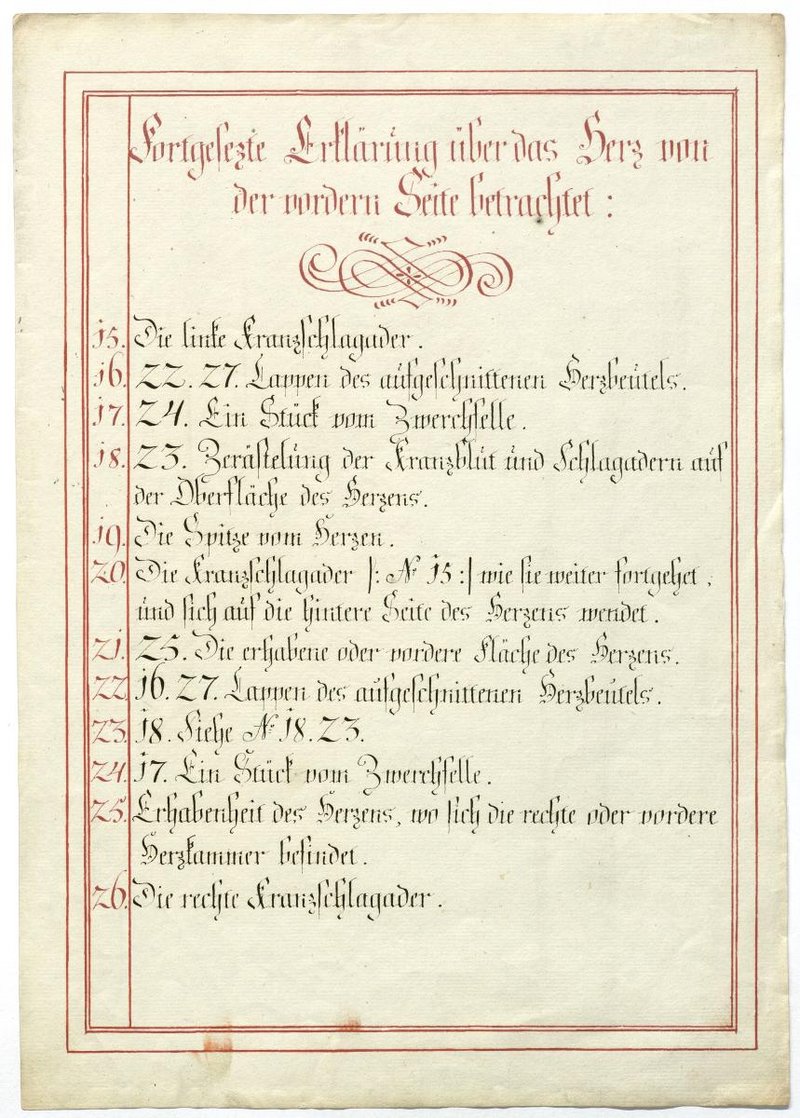 Fortgesezte Erklärung über das Herz von
der vordern Seite betrachtet :
15. Die linke Kranzschlagader.
16. 22. 27. Lappen des aufgeschnittenen Herzbeutels.
17. 24. Ein Stück vom Zwerchfelle.
18. 23. Zerästelung der Kranzblut und Schlagadern auf
der Oberfläche des Herzens.
19. Die Spitze vom Herzen.
20. Die Kranzschlagader |: No 15 :| wie sie weiter fortgehet,
und sich auf die hintere Seite des Herzens wendet.
21. 25. Die erhabene oder vordere Fläche des Herzens.
22. 16. 27. Lappen des aufgeschnittenen Herzbeutels.
23. 18. Siehe No 18. 23.
24. 17. Ein Stück vom Zwerchfelle.
25. Erhabenheit des Herzens, wo sich die rechte oder vordere
Herzkammer befindet.
26. Die rechte Kranzschlagader.